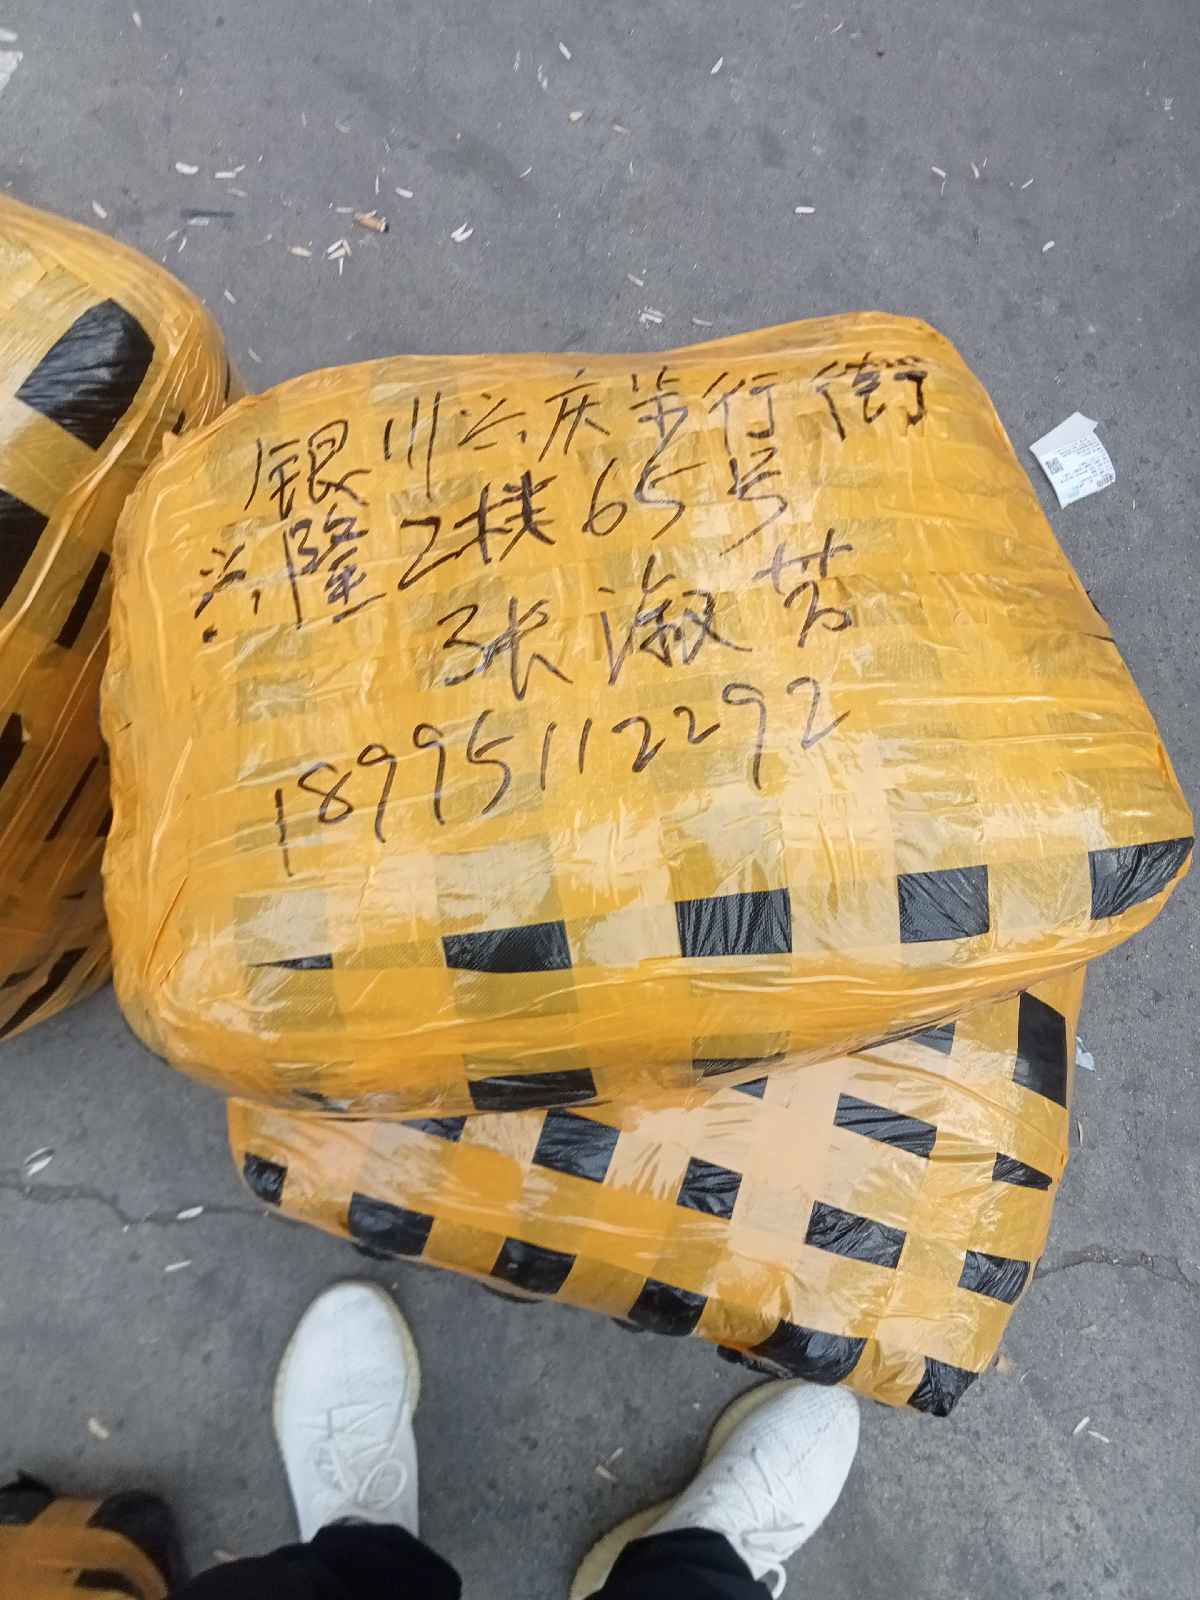 银川兴庆步行街
兴隆2楼65号
张淑芳
18995112292